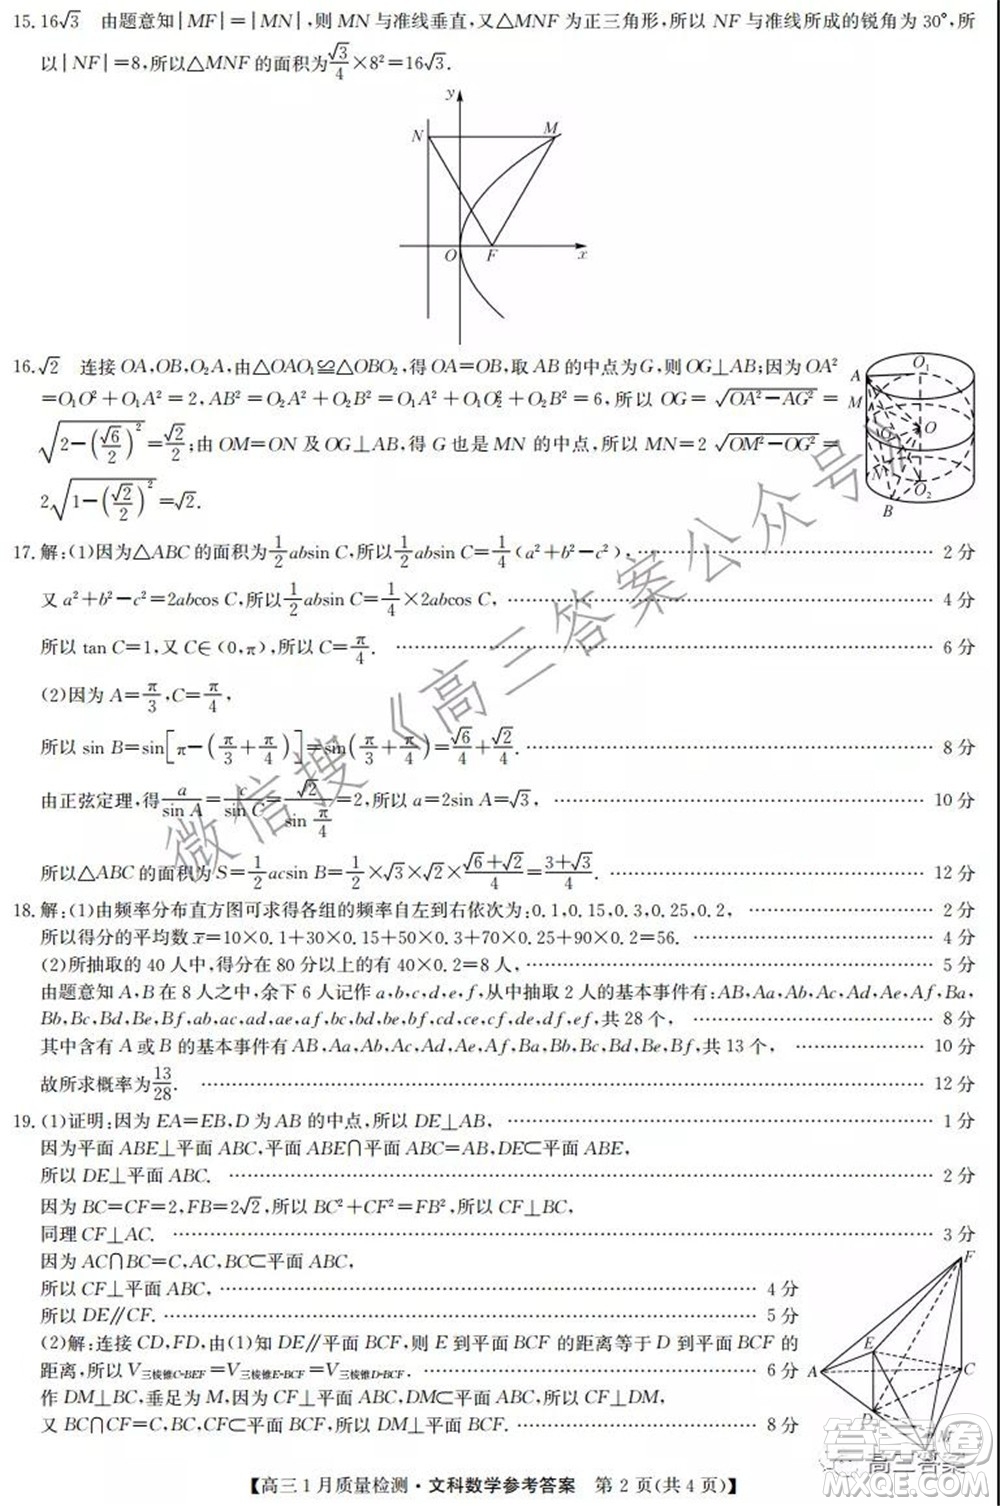 15. 16√3　由题意知|MF|=|MN|,则MN与准线垂直,又△MNF为正三角形,所以NF与准线所成的锐角为30°,所
以|NF|=8,所以△MNF的面积为√3/4×8²=16√3.
y
N M
O F x
16. √2　连接OA,OB,O₂A,由△OAO₁≌△OBO₂,得OA=OB,取AB的中点为G,则OG⊥AB;因为OA²
=O₁O²+O₁A²=2,AB²=O₂A²+O₂B²=O₁A²+O₁O₂²+O₂B²=6,所以OG=√(OA²-AG²)=
√(2-(√6/2)²)=√2/2;由OM=ON及OG⊥AB,得G也是MN的中点,所以MN=2√(OM²-OG²)=
2√(1-(√2/2)²)=√2.
A O₁
M
G O
N O₂
B
17. 解:(1)因为△ABC的面积为1/2absin C,所以1/2absin C=1/4(a²+b²-c²),……2分
又a²+b²-c²=2abcos C,所以1/2absin C=1/4×2abcos C,……4分
所以tan C=1,又C∈(0,π),所以C=π/4.……6分
(2)因为A=π/3,C=π/4,
所以sin B=sin[π-(π/3+π/4)]=sin(π/3+π/4)=√6/4+√2/4.……8分
由正弦定理,得a/sin A=c/sin C=√2/sin π/4=2,所以a=2sin A=√3,……10分
所以△ABC的面积为S=1/2acsin B=1/2×√3×√2×(√6+√2)/4=(3+√3)/4.……12分
18. 解:(1)由频率分布直方图可求得各组的频率自左到右依次为:0.1,0.15,0.3,0.25,0.2,……2分
所以得分的平均数x̄=10×0.1+30×0.15+50×0.3+70×0.25+90×0.2=56.……4分
(2)所抽取的40人中,得分在80分以上的有40×0.2=8人,……5分
由题意知A,B在8人之中,余下6人记作a,b,c,d,e,f,从中抽取2人的基本事件有:AB,Aa,Ab,Ac,Ad,Ae,Af,Ba,
Bb,Bc,Bd,Be,Bf,ab,ac,ad,ae,af,bc,bd,be,bf,cd,ce,cf,de,df,ef,共28个,……8分
其中含有A或B的基本事件有AB,Aa,Ab,Ac,Ad,Ae,Af,Ba,Bb,Bc,Bd,Be,Bf,共13个,……10分
故所求概率为13/28.……12分
19. (1)证明:因为EA=EB,D为AB的中点,所以DE⊥AB,……1分
因为平面ABE⊥平面ABC,平面ABE∩平面ABC=AB,DE⊂平面ABE,
所以DE⊥平面ABC.……2分
因为BC=CF=2,FB=2√2,所以BC²+CF²=FB²,所以CF⊥BC,
同理CF⊥AC.……3分
因为AC∩BC=C,AC,BC⊂平面ABC,
所以CF⊥平面ABC,……4分
所以DE∥CF.……5分
(2)解:连接CD,FD,由(1)知DE∥平面BCF,则E到平面BCF的距离等于D到平面BCF的
距离,所以V三棱锥C-BEF=V三棱锥E-BCF=V三棱锥D-BCF.……6分
作DM⊥BC,垂足为M,因为CF⊥平面ABC,DM⊂平面ABC,所以CF⊥DM,
又BC∩CF=C,BC,CF⊂平面BCF,所以DM⊥平面BCF.……8分
F
E
A C
D
M
微信搜《高三答案公众号》
高三答案
【高三1月质量检测·文科数学参考答案　第2页(共4页)】